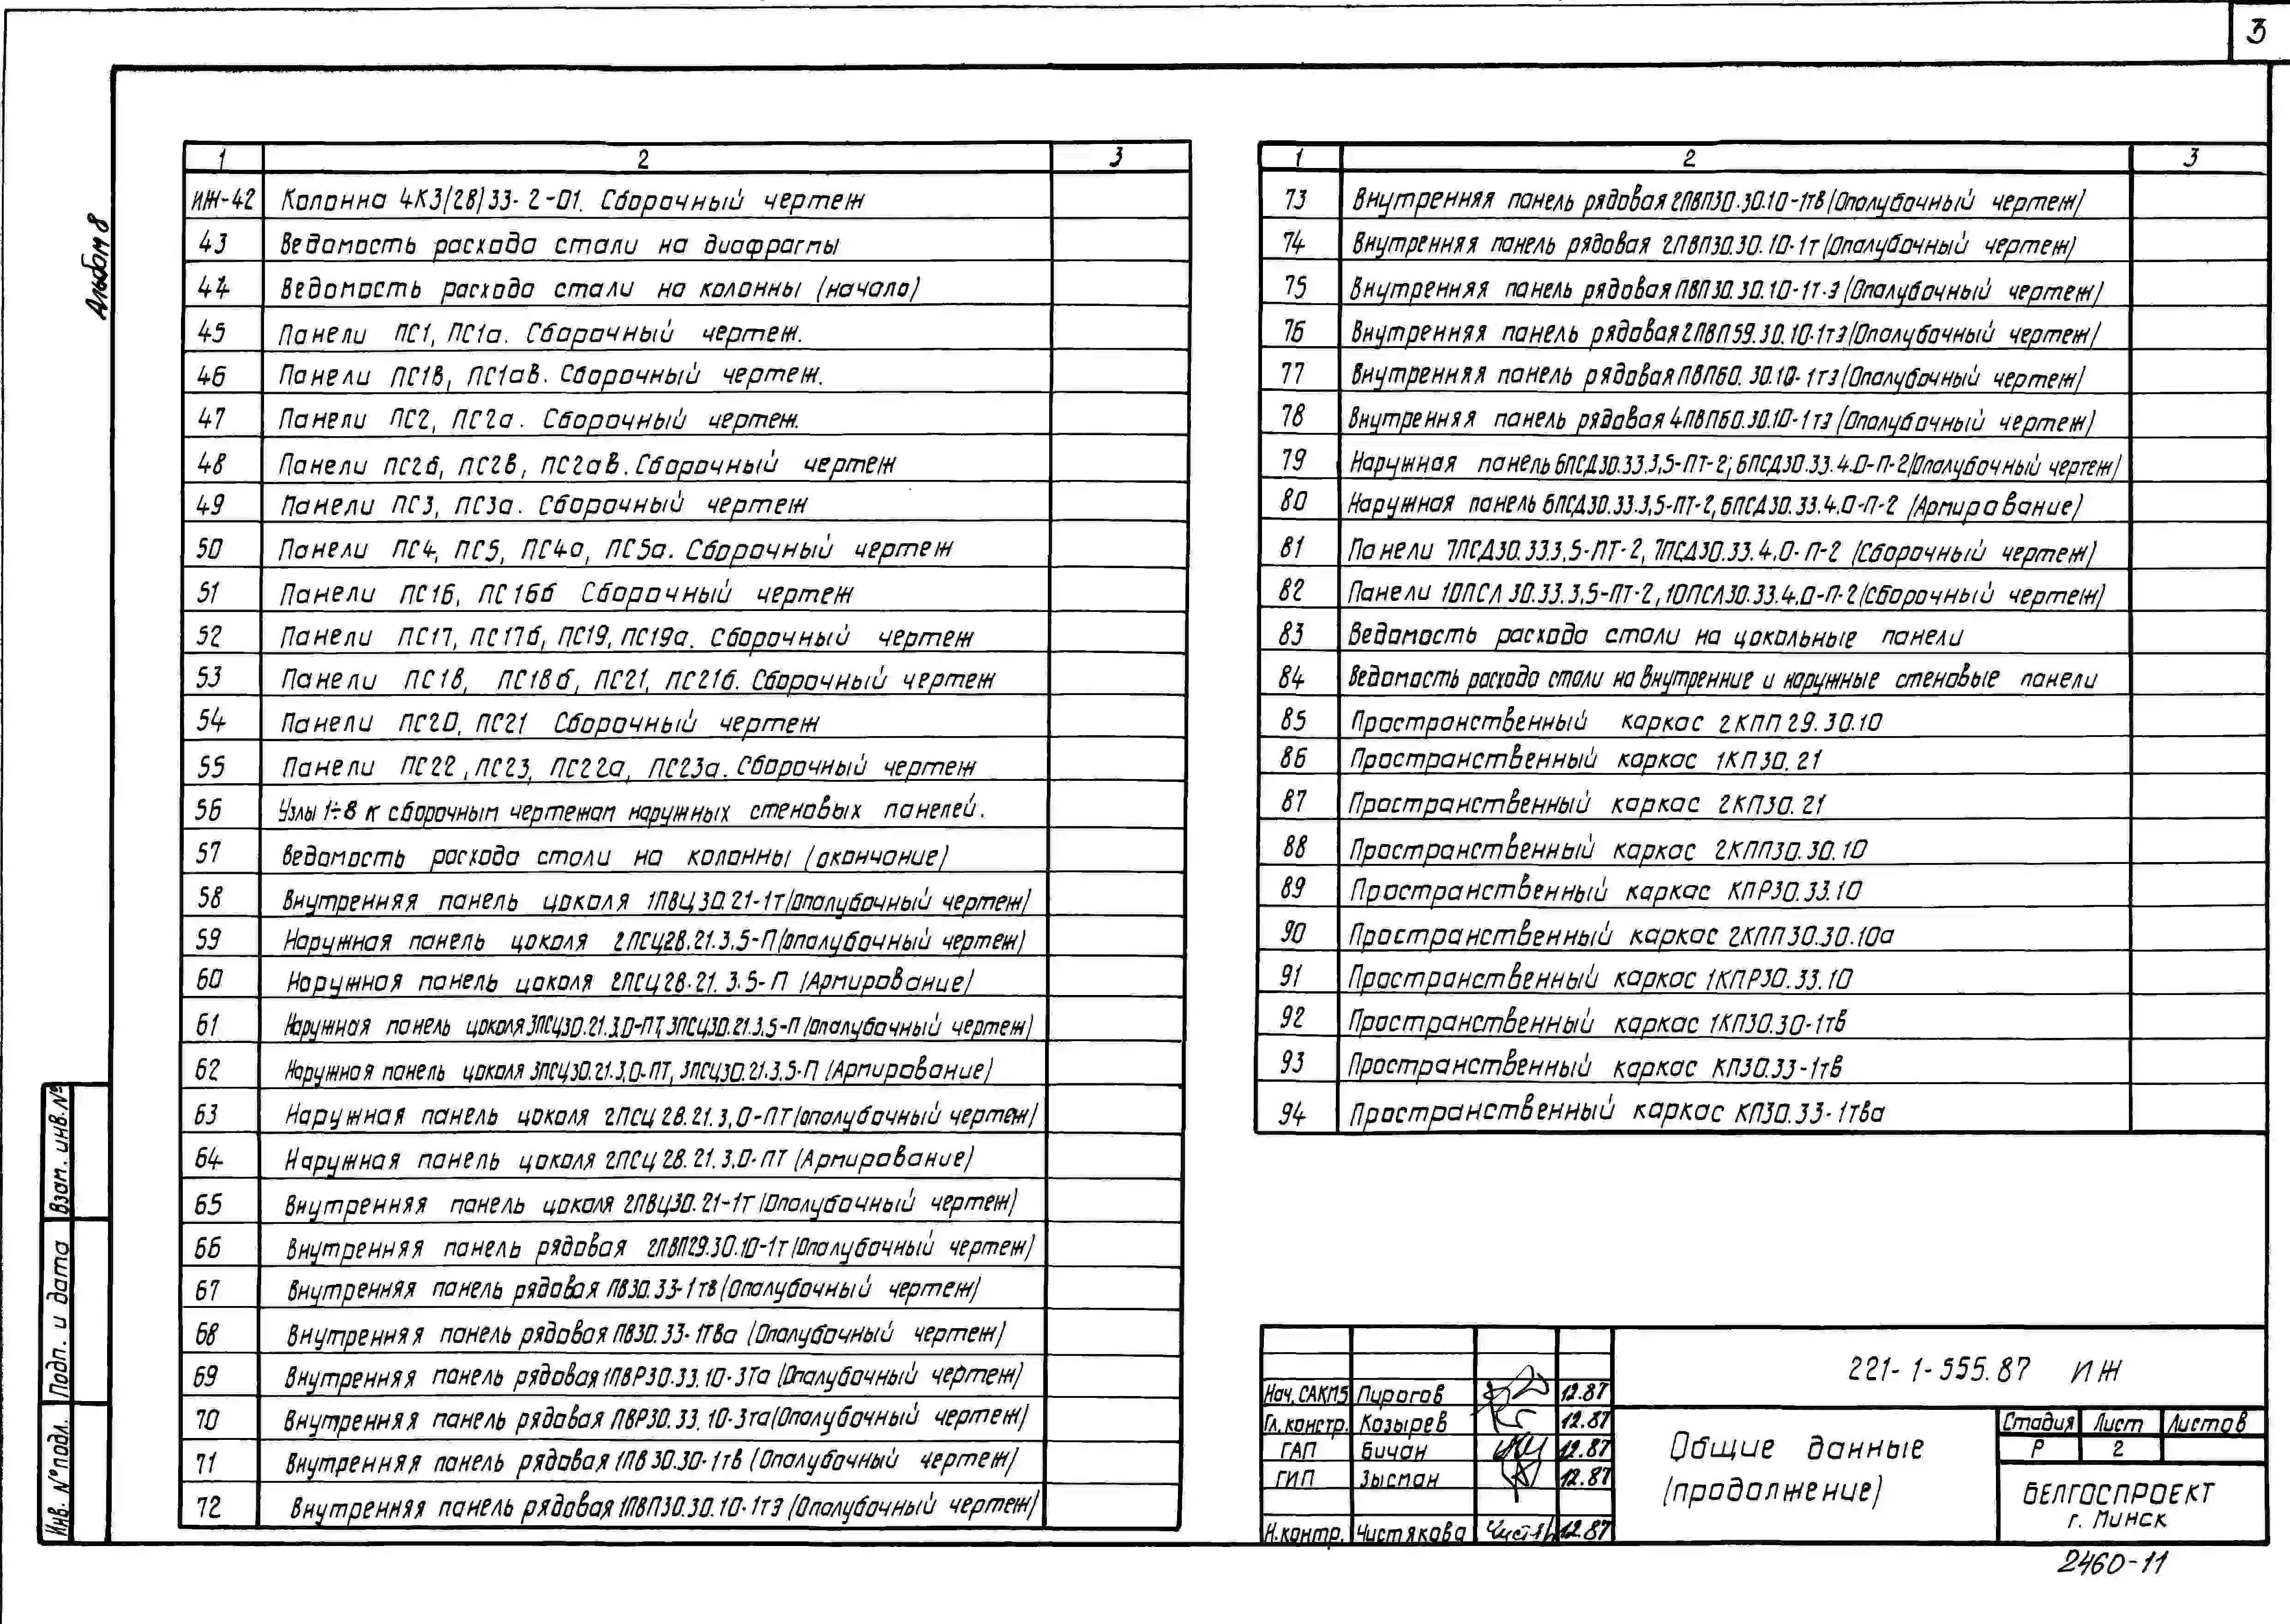 3
Альбом 8
1 2 3
ИЖ-42 Колонна 4К3(28)33-2-01. Сборочный чертеж
43 Ведомость расхода стали на диафрагмы
44 Ведомость расхода стали на колонны (начало)
45 Панели ПС1, ПС1а. Сборочный чертеж.
46 Панели ПС1в, ПС1ав. Сборочный чертеж.
47 Панели ПС2, ПС2а. Сборочный чертеж.
48 Панели ПС2б, ПС2в, ПС2ав. Сборочный чертеж
49 Панели ПС3, ПС3а. Сборочный чертеж
50 Панели ПС4, ПС5, ПС4а, ПС5а. Сборочный чертеж
51 Панели ПС16, ПС16б Сборочный чертеж
52 Панели ПС17, ПС17б, ПС19, ПС19а. Сборочный чертеж
53 Панели ПС18, ПС18б, ПС21, ПС21б. Сборочный чертеж
54 Панели ПС20, ПС21 Сборочный чертеж
55 Панели ПС22, ПС23, ПС22а, ПС23а. Сборочный чертеж
56 Узлы 1÷8 к сборочным чертежам наружных стеновых панелей.
57 Ведомость расхода стали на колонны (окончание)
58 Внутренняя панель цоколя 1ПВЦ30.21-1т (опалубочный чертеж)
59 Наружная панель цоколя 2ПСЦ28.21.3.5-П (опалубочный чертеж)
60 Наружная панель цоколя 2ПСЦ28.21.3.5-П (Армирование)
61 Наружная панель цоколя 3ПСЦ30.21.3.0-ПТ, 3ПСЦ30.21.3.5-П (опалубочный чертеж)
62 Наружная панель цоколя 3ПСЦ30.21.3,0-ПТ, 3ПСЦ30.21.3.5-П (Армирование)
63 Наружная панель цоколя 2ПСЦ28.21.3,0-ПТ (опалубочный чертеж)
64 Наружная панель цоколя 2ПСЦ28.21.3.0-ПТ (Армирование)
65 Внутренняя панель цоколя 2ПВЦ30.21-1т (Опалубочный чертеж)
66 Внутренняя панель рядовая 2ПВП29.30.10-1т (Опалубочный чертеж)
67 Внутренняя панель рядовая ПВ30.33-1тв (Опалубочный чертеж)
68 Внутренняя панель рядовая ПВ30.33-1тва (Опалубочный чертеж)
69 Внутренняя панель рядовая 1ПВР30.33.10-3та (Опалубочный чертеж)
70 Внутренняя панель рядовая ПВР30.33.10-3та (Опалубочный чертеж)
71 Внутренняя панель рядовая 1ПВ30.30-1тв (Опалубочный чертеж)
72 Внутренняя панель рядовая 1ПВП30.30.10-1тэ (Опалубочный чертеж)
1 2 3
73 Внутренняя панель рядовая 2ПВП30.30.10-1тв (Опалубочный чертеж)
74 Внутренняя панель рядовая 2ПВП30.30.10-1т (Опалубочный чертеж)
75 Внутренняя панель рядовая ПВП30.30.10-1т-э (Опалубочный чертеж)
76 Внутренняя панель рядовая 2ПВП59.30.10-1тэ (Опалубочный чертеж)
77 Внутренняя панель рядовая ПВП60.30.10-1тэ (Опалубочный чертеж)
78 Внутренняя панель рядовая 4ПВП60.30.10-1тэ (Опалубочный чертеж)
79 Наружная панель 6ПСД30.33.3,5-ПТ-2; 6ПСД30.33.4.0-П-2 (Опалубочный чертеж)
80 Наружная панель 6ПСД30.33.3,5-ПТ-2, 6ПСД30.33.4.0-П-2 (Армирование)
81 Панели 7ПСД30.333,5-ПТ-2, 7ПСД30.33.4.0-П-2 (Сборочный чертеж)
82 Панели 10ПСЛ30.33.3,5-ПТ-2, 10ПСЛ30.33.4.0-П-2 (Сборочный чертеж)
83 Ведомость расхода стали на цокольные панели
84 Ведомость расхода стали на внутренние и наружные стеновые панели
85 Пространственный каркас 2КПП29.30.10
86 Пространственный каркас 1КП30.21
87 Пространственный каркас 2КП30.21
88 Пространственный каркас 2КПП30.30.10
89 Пространственный каркас КПР30.33.10
90 Пространственный каркас 2КПП30.30.10а
91 Пространственный каркас 1КПР30.33.10
92 Пространственный каркас 1КП30.30-1тв
93 Пространственный каркас КП30.33-1тв
94 Пространственный каркас КП30.33-1тва
Взам. инв.№
Подп. и дата
Инв. № подл.
221-1-555.87 ИЖ
Нач. САКМ5 Пирогов 12.87
Гл. констр. Козырев 12.87
ГАП Бичан 12.87
ГИП Зысман 12.87
Н. контр. Чистякова 12.87
Общие данные
(продолжение)
Стадия Лист Листов
Р 2
БЕЛГОСПРОЕКТ
г. Минск
2460-11